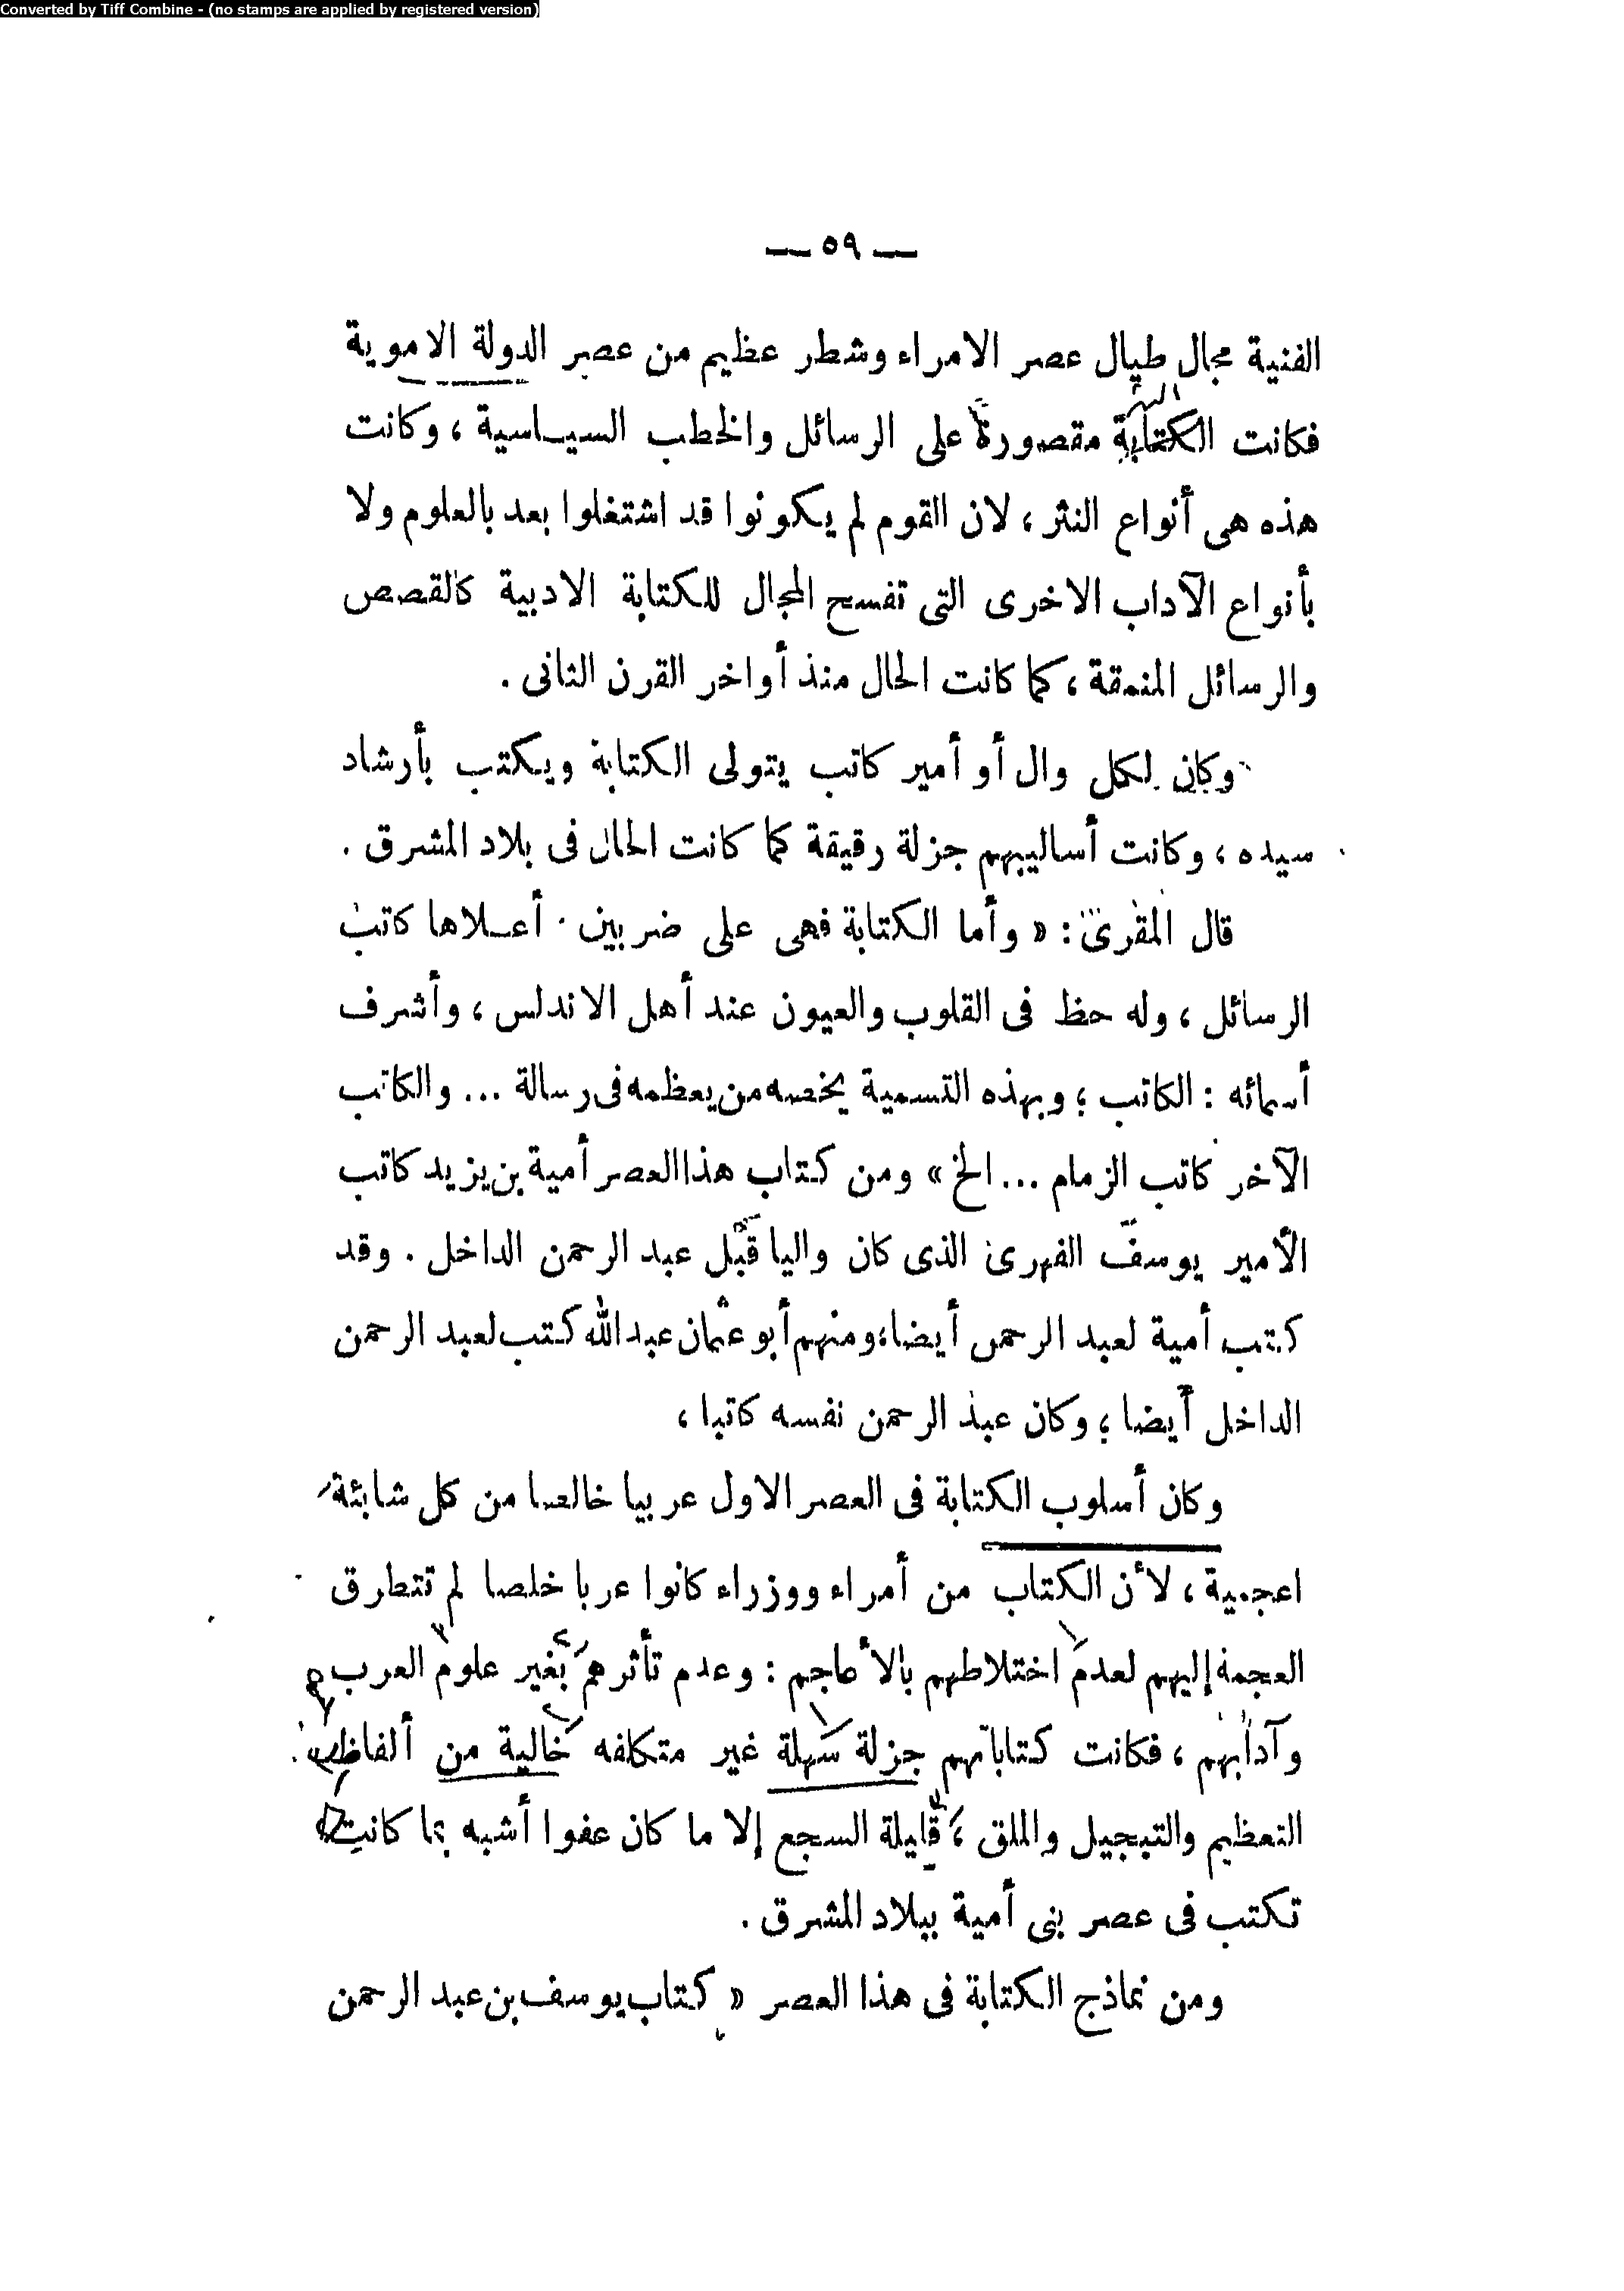 Converted by Tiff Combine - (no stamps are applied by registered version)
— ٥٩ —
الفنية مجال طيال عصر الامراء وشطر عظيم من عصر الدولة الاموية
فكانت الكتابة مقصورة على الرسائل والخطب السياسية ، وكانت
هذه هى أنواع النثر ، لان القوم لم يكونوا قد اشتغلوا بعد بالعلوم ولا
بأنواع الآداب الاخرى التى تفسح المجال للكتابة الادبية كالقصص
والرسائل المنمقة ، كما كانت الحال منذ أواخر القرن الثانى .
وكان لكل وال أو أمير كاتب يتولى الكتابة ويكتب بأرشاد
سيده ، وكانت أساليبهم جزلة رقيقة كما كانت الحال فى بلاد المشرق .
قال المقرى : « وأما الكتابة فهى على ضربين . أعلاها كاتب
الرسائل ، وله حظ فى القلوب والعيون عند أهل الاندلس ، وأشرف
أسمائه : الكاتب ؛ وبهذه التسمية يخصه من يعظمه فى رسالة ... والكاتب
الآخر كاتب الزمام ... الخ » ومن كتاب هذا العصر أمية بن يزيد كاتب
الأمير يوسف الفهرى الذى كان واليا قبل عبد الرحمن الداخل . وقد
كتب أمية لعبد الرحمن أيضا ؛ ومنهم أبو عثمان عبد الله كتب لعبد الرحمن
الداخل أيضا ؛ وكان عبد الرحمن نفسه كاتبا ،
وكان أسلوب الكتابة فى العصر الاول عربيا خالصا من كل شابئة
اعجمية ، لأن الكتاب من أمراء ووزراء كانوا عربا خلصا لم تتطرق
العجمة إليهم لعدم اختلاطهم بالأعاجم : وعدم تأثرهم بغير علوم العرب
وآدابهم ، فكانت كتاباتهم جزلة سهلة غير متكلفه خالية من ألفاظ
التعظيم والتبجيل والملق ، قليلة السجع إلا ما كان عفوا أشبه بما كانت
تكتب فى عصر بنى أمية ببلاد المشرق .
ومن نماذج الكتابة فى هذا العصر « كتاب يوسف بن عبد الرحمن